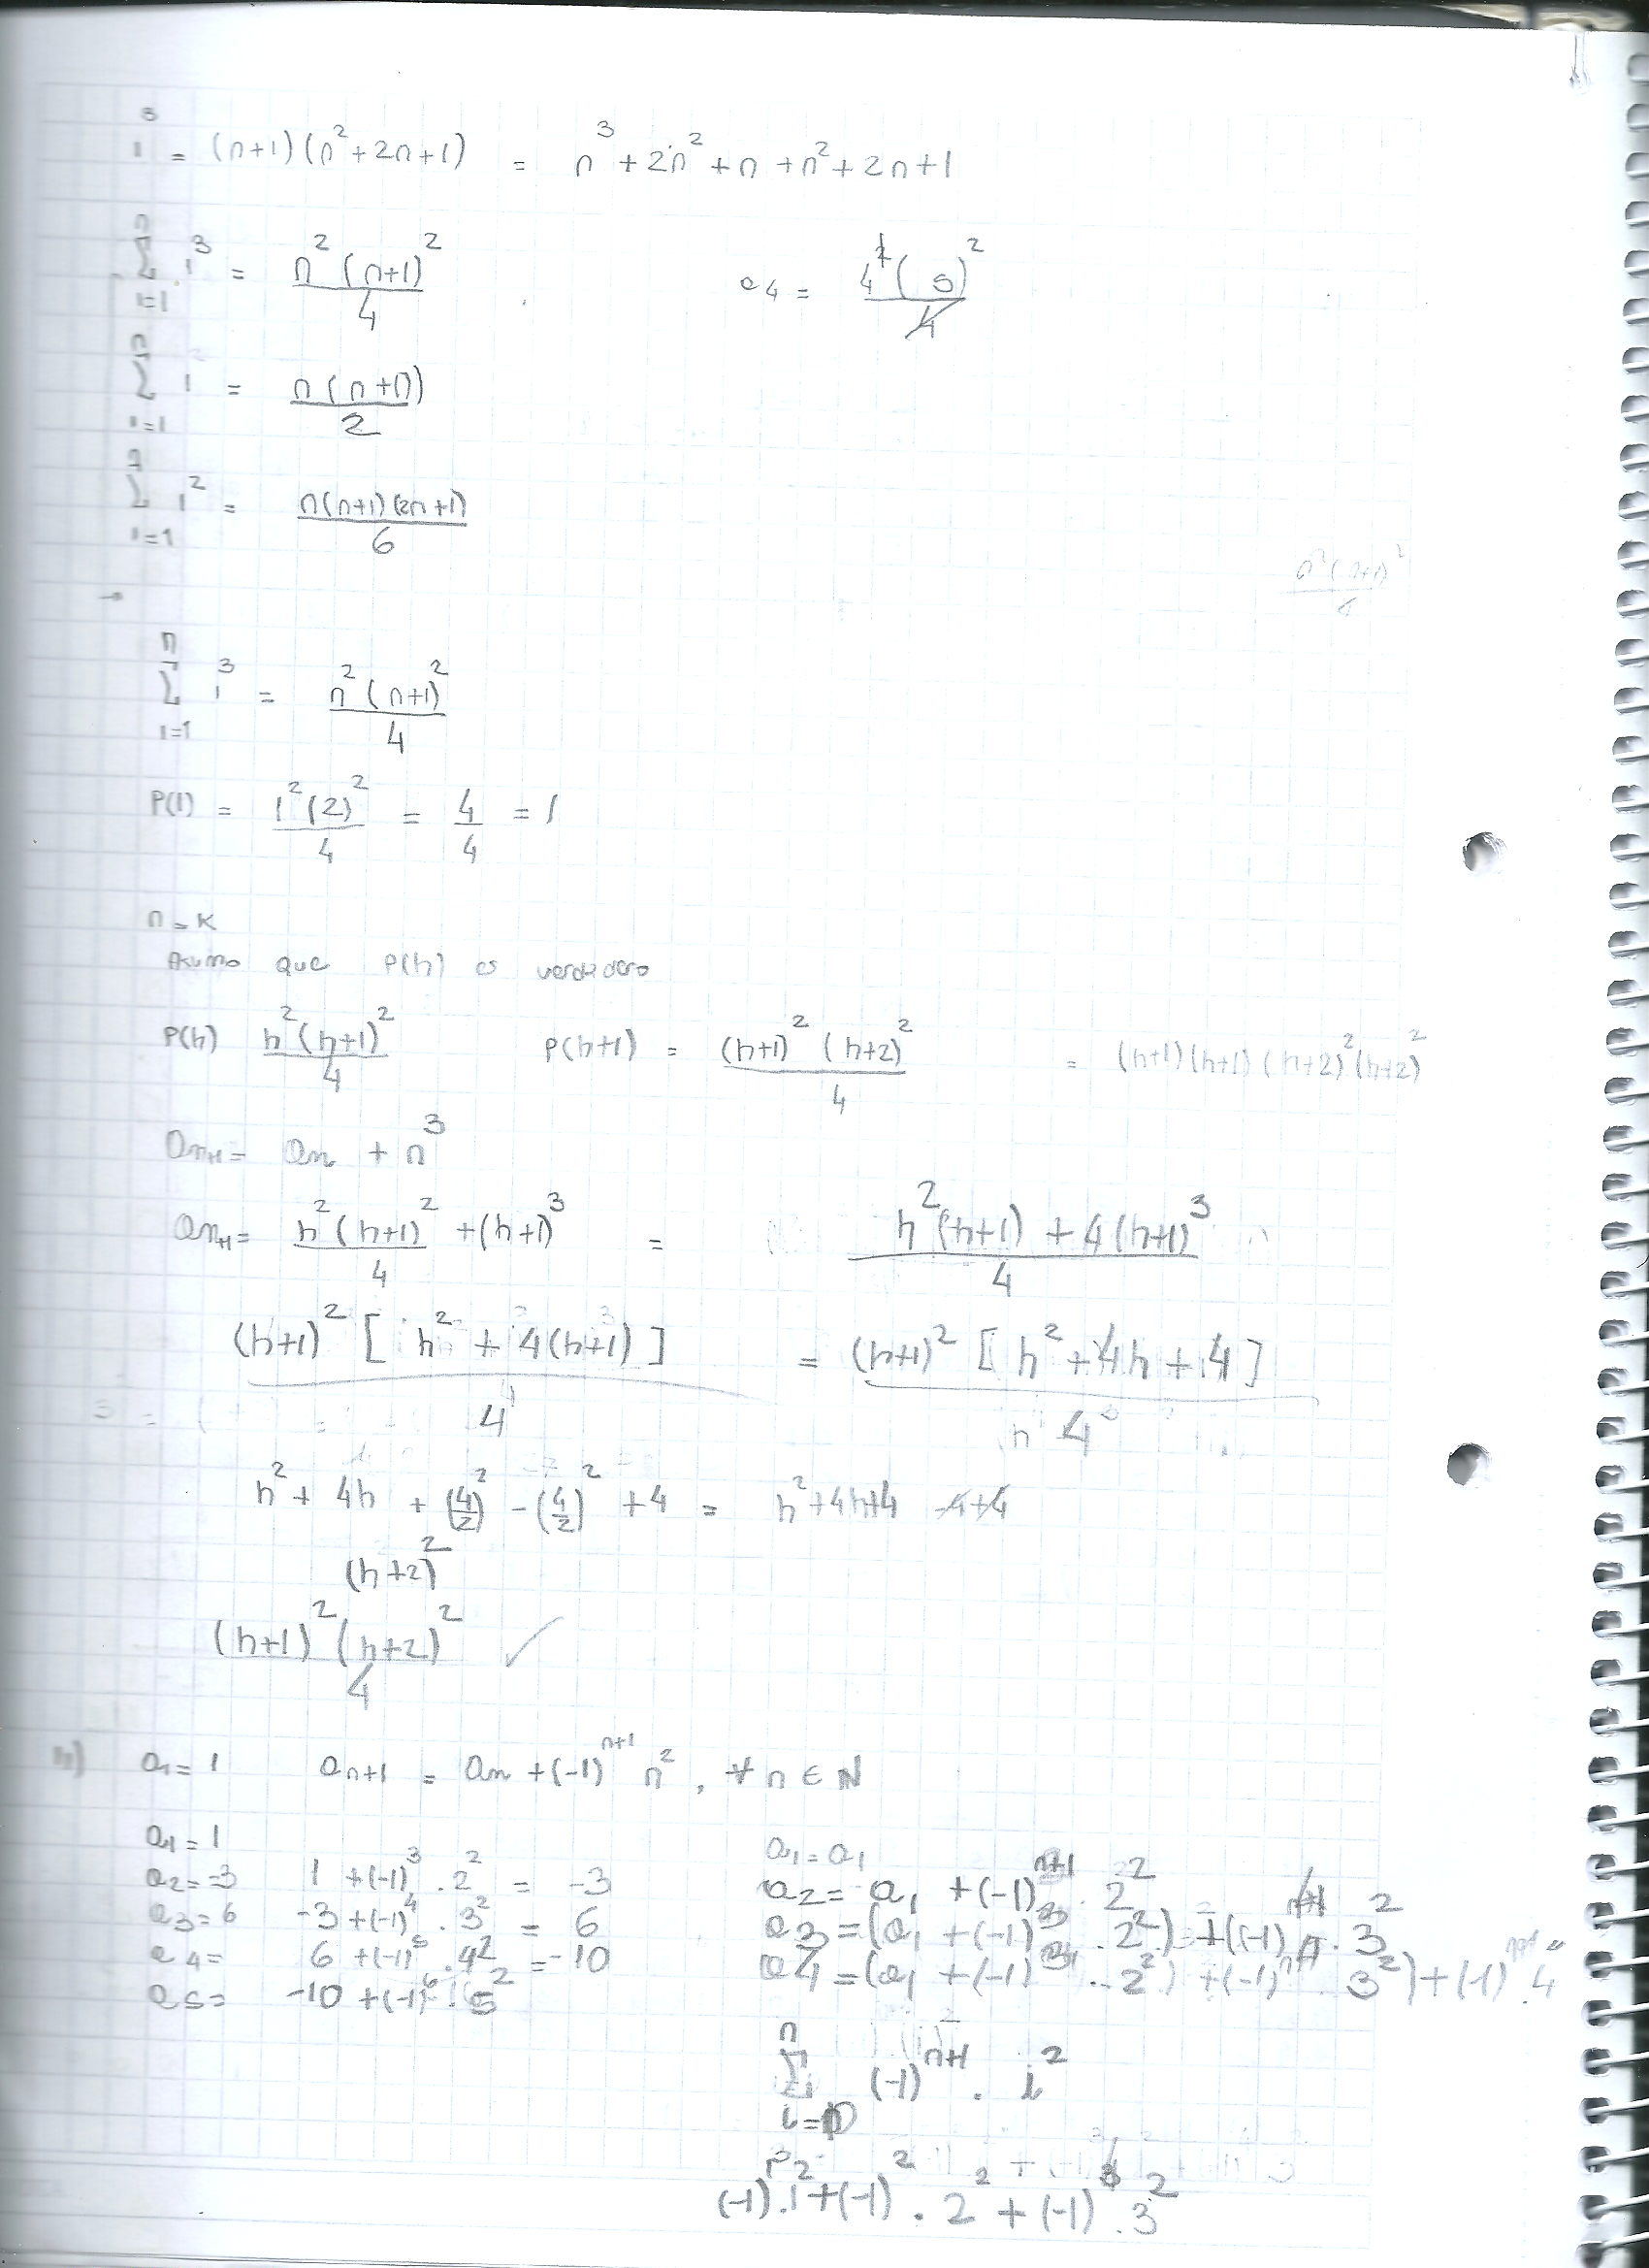 i³ = (n+1)(n²+2n+1) = n³+2n²+n+n²+2n+1
n ∑ i=1 i³ = n²(n+1)² / 4
a4 = 4(5)² / 4
n ∑ i=1 i = n(n+1) / 2
n ∑ i=1 i² = n(n+1)(2n+1) / 6
n²(n+1)² / 4
→
n ∑ i=1 i³ = n²(n+1)² / 4
P(1) = 1²(2)² / 4 = 4/4 = 1
n = K
Asumo que P(h) es verdadero
P(h) h²(h+1)² / 4 P(h+1) = (h+1)²(h+2)² / 4 = (h+1)(h+1)(h+2)²(h+2)²
an+1 = an + n³
an+1 = h²(h+1)² / 4 + (h+1)³ = h²(h+1) + 4(h+1)³ / 4
(h+1)² [h² + 4(h+1)] / 4 = (h+1)² [h² + 4h + 4] / 4
h² + 4h + (4/2)² - (4/2)² + 4 = h²+4h+4 -4+4
(h+2)²
(h+1)²(h+2)² / 4 ✓
a1 = 1 an+1 = an + (-1)ⁿ⁺¹ n², ∀ n ∈ N
a1 = 1
a2 = -3 1 + (-1)³ . 2² = -3
a3 = 6 -3 + (-1)⁴ . 3² = 6
a4 = 6 + (-1)⁵ . 4² = -10
a5 = -10 + (-1)⁶ . 5²
a1 = a1
a2 = a1 + (-1)ⁿ⁺¹ . 2²
a3 = (a1 + (-1)³ . 2²) + (-1)ⁿ⁺¹ . 3²
a4 = (a1 + (-1) . 2²) + (-1) . 3²) + (-1) . 4
n ∑ (-1)ⁿ⁺¹ . i²
(-1) . 1² + (-1)² . 2² + (-1)³ . 3²